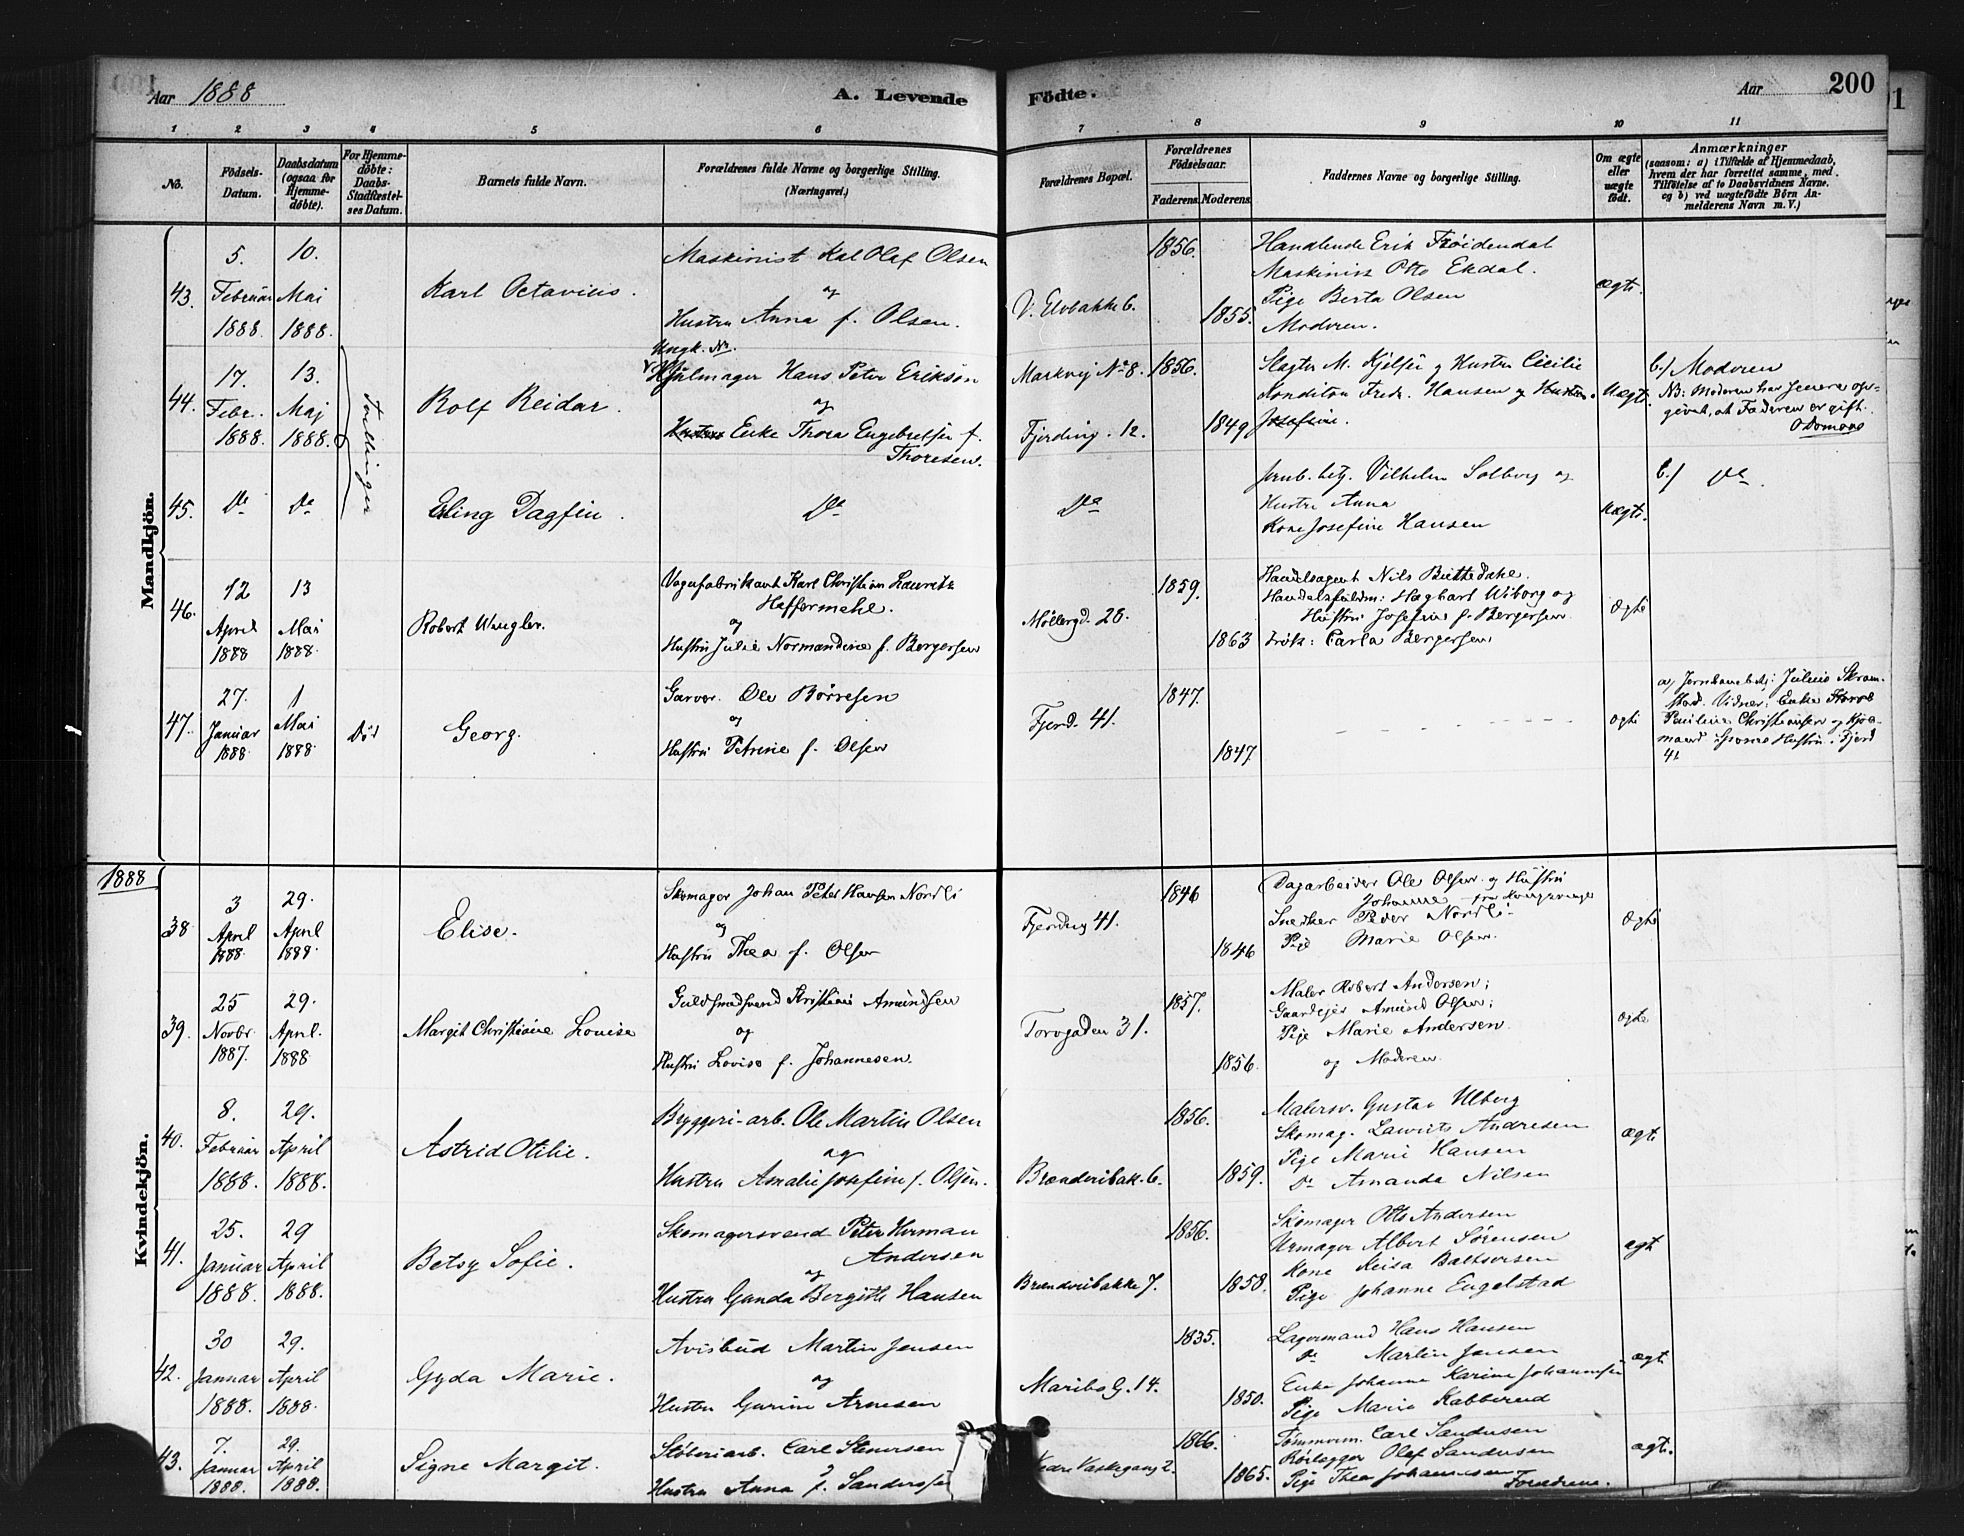 Aar 1888 A. Levende Födte. Aar 200
1 2 3 4 5 6 7 8 9 10 11
No. Födsels-Datum. Daabsdatum (ogsaa for Hjemme-döbte). For Hjemme-döbte: Daabs-Stadfæstel-ses Datum. Barnets fulde Navn. Forældrenes fulde Navne og borgerlige Stilling. (Næringsvei.) Forældrenes Bopæl. Forældrenes Födselsaar. Faderens. Moderens. Faddernes Navne og borgerlige Stilling. Om ægte eller uægte födt. Anmærkninger (saasom: a) i Tilfælde af Hjemmedaab, hvem der har forrettet samme, med Tilföielse af to Daabsvidners Navne, og b) ved uægtefödte Börn An-melderens Navn m. V.)
Mandkjön.
43. 5. Februar 1888. 10. Mai 1888. Karl Octavius.
Maskinist Karl Olaf Olsen
og
Hustru Anna f. Olsen.
V. Elvbakke 6. 1856. 1855.
Handlende Erik Frøidendal
Maskinist Otto Ekdal.
Pige Berta Olsen
Moderen.
ægte.
44. 17. Febr. 1888. 13. Maj 1888. Tvillinger Rolf Reidar.
Ungk. No.
Hjulmager Hans Peter Eriksøn
og
Hustru Enke Thora Engebretsen f.
Thoresen.
Markvej No 8. 1856.
Fjerding. 12. 1849
Slagter M. Kjelsen og Hustru Cicilie
Konditor Fredr. Hansen og Hustru
Josefine.
Uægte.
b.) Moderen
NB: Moderen har senere op-
givet, at Faderen er gift.
45. Do Do Erling Dagfin.
Do
Do
Jernb. betj. Vilhelm Solberg og
Hustru Anna
Kone Josefine Hansen
Uægte.
b.) Do
46. 12 April 1888 13 Mai 1888. Robert Wengler.
Vognfabrikant Karl Christian Lauritz
Heffermehl.
og
Hustru Julie Normandine f. Borgersen
Møllergd. 28. 1859. 1863
Handelsagent Nils Buttedahl.
Handelsfuldm: Hagbart Wiborg og
Hustru Josefine f. Bergersen.
Frøk: Carla Bergersen
Ægte
47. 27. Januar 1888 1 Mai 1888 Död Georg.
Garver Ole Børresen
og
Hustru Petrine f. Olsen
Fjerd. 41. 1847. 1847
ægte
a) Jernbanebetj: Julius Skram-
stad. Vidner: Enke
Pauline Christiansen og
Hustru i Fjerd
41
1888
Kvindekjön.
38 3 April 1888. 29. April 1888. Elise.
Skomager Johan Peter Hansen Nordli
og
Hustru Thea f. Olsen
Fjerding 41. 1846 1846
Dagarbeider Ole Olsen og Hustru
Johanne fra Kongsvinger
Snedker Peder Nordli
Pige Marie Olsen.
Ægte
39. 25 Novbr 1887. 29. April. 1888 Margit Christiane Louise
Guldsmedsvend Kristian Amundsen
og
Hustru Lovise f. Johannesen.
Torvgaden 31. 1857. 1856.
Maler Robert Andersen;
Gaardejer Amund Olsen;
Pige Marie Andersen.
og Moderen.
ægte
40. 8. Februar 1888. 29. April 1888. Astrid Otilie.
Byggeri-arb. Ole Martin Olsen
og
Hustru Amalie Josefine f. Olsen.
Brænderibak. 6. 1856. 1859.
Malersv. Gustav Ulberg
Skomag. Laurits Andresen
Pige Marie Hansen
Do Amanda Nilsen
ægt.
41. 25. Januar 1888. 29 April 1888. Betsy Sofie.
Skomagersvend Peter Herman
Andersen
og
Hustru Gunda Bergitte Hansen
Brænderibakke 7. 1856. 1858.
Skomager Otto Andersen
Urmager Albert Sørensen
Kone Reisa Baltsersen
Pige Johanne Engelstad
ægt.
42. 30 Januar 1888. 29. April 1888. Gyda Marie.
Avisbud Martin Jensen
og
Hustru Gurine Arnesen
Maribo G. 14. 1835. 1850.
Lagermand Hans Hansen
Do Martin Jensen
Enke Johanne Karine Johannesen
Pige Marie Kabberud
ægt.
43. 7. Januar 1888. 29. April 1888. Signe Margit.
Støberiarb. Carl Stenersen
og
Hustru Anna f. Sandersen
Nedre Vaskegang 2. 1866. 1865.
Tömmerm. Carl Sandersen
Rörlægger Olaf Sandersen
Pige Thea Johannesen
Forældrene.
ægt.